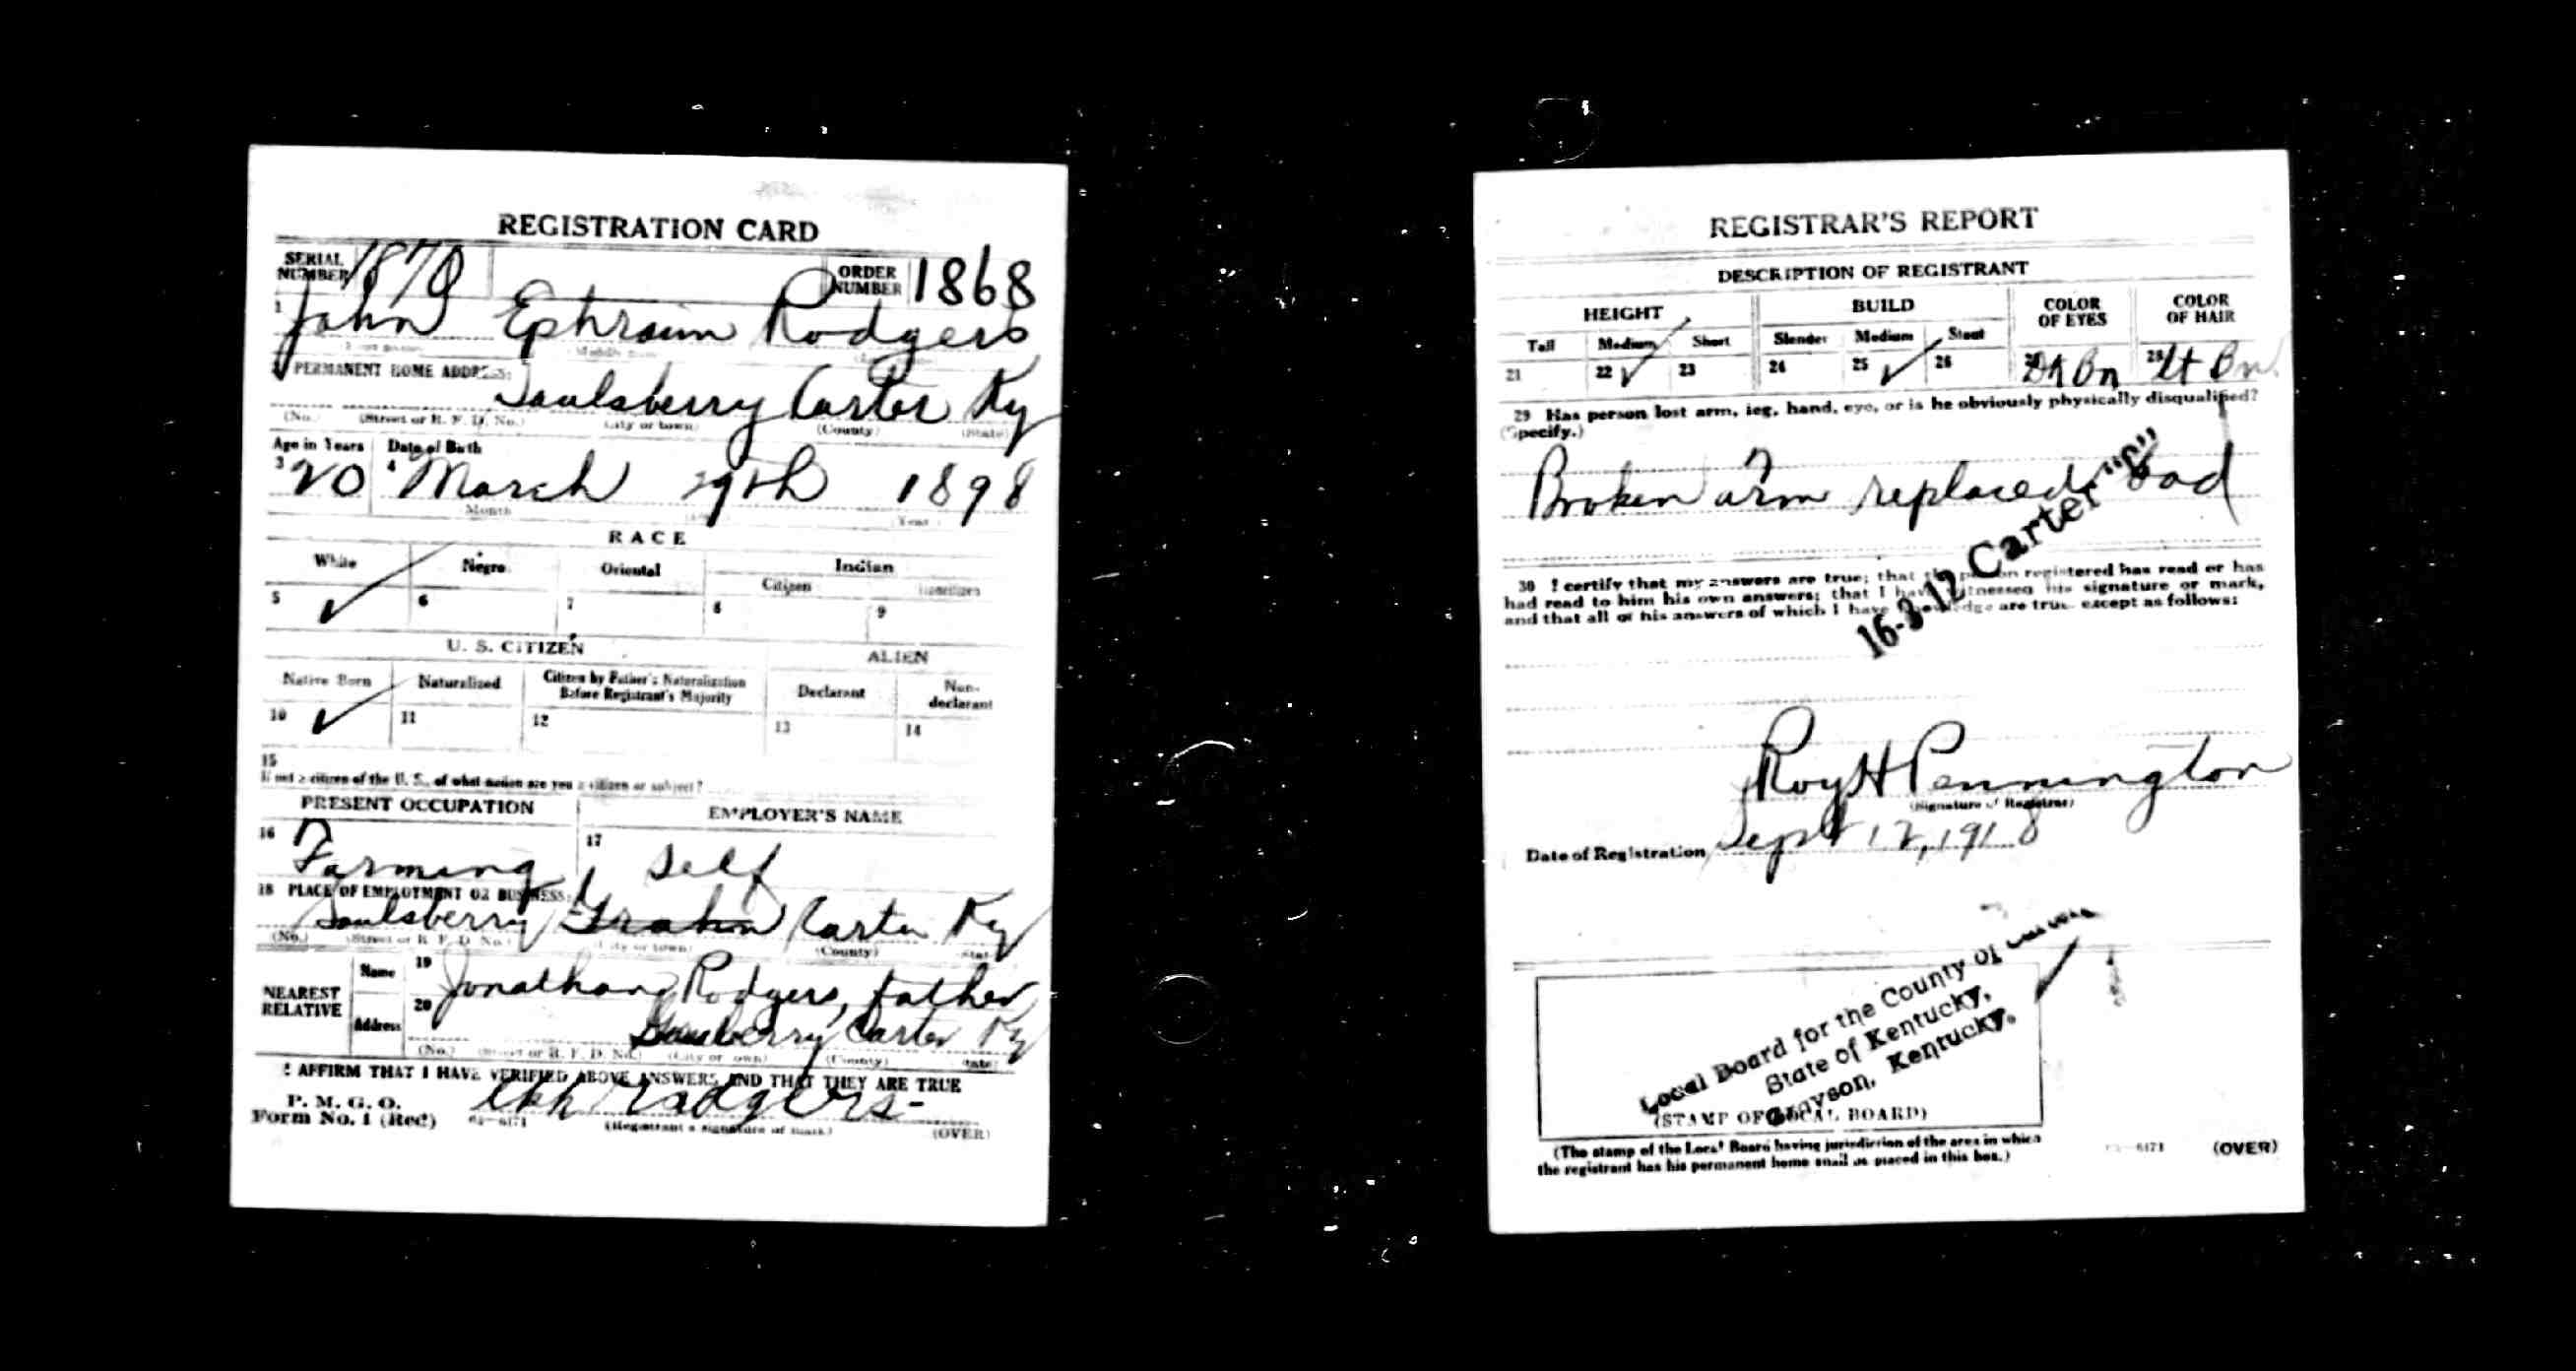 REGISTRATION CARD
SERIAL NUMBER 1870 ORDER NUMBER 1868
1 John Ephraim Rodgers
2 PERMANENT HOME ADDRESS:
Saulsberry Carter Ky
(No.) (Street or R. F. D. No.) (City or town) (County) (State)
Age in Years Date of Birth
3 20 4 March 29th 1898
Month Year
RACE
White Negro Oriental Indian
Citizen Noncitizen
5 ✓ 6 7 8 9
U. S. CITIZEN ALIEN
Native Born Naturalized Citizen by Father's Naturalization Before Registrant's Majority Declarant Non-declarant
10 ✓ 11 12 13 14
15
If not a citizen of the U. S., of what nation are you a citizen or subject?
PRESENT OCCUPATION EMPLOYER'S NAME
16 Farming 17 Self
18 PLACE OF EMPLOYMENT OR BUSINESS:
Saulsberry Grahn Carter Ky
(No.) (Street or R. F. D. No.) (City or town) (County) (State)
NEAREST RELATIVE
Name 19 Jonathan Rodgers, father
Address 20 Carter Ky
(No.) (Street or R. F. D. No.) (City or town) (County) (State)
I AFFIRM THAT I HAVE VERIFIED ABOVE ANSWERS AND THAT THEY ARE TRUE
P. M. G. O.
Form No. 1 (Red) Rodgers
(Registrant's signature or mark) (OVER)
REGISTRAR'S REPORT
DESCRIPTION OF REGISTRANT
HEIGHT BUILD COLOR OF EYES COLOR OF HAIR
Tall Medium Short Slender Medium Stout
21 22 ✓ 23 24 25 ✓ 26 Dk Bn 28 Lt Bn
29 Has person lost arm, leg, hand, eye, or is he obviously physically disqualified?
(Specify.)
Broken arm replaced bad
30 I certify that my answers are true; that the person registered has read or has
had read to him his own answers; that I have witnessed his signature or mark,
and that all of his answers of which I have knowledge are true, except as follows:
16-3-12 Carter "C"
Roy H Pennington
(Signature of Registrar)
Date of Registration Sept 12, 1918
Local Board for the County of
State of Kentucky,
Grayson, Kentucky.
(STAMP OF LOCAL BOARD)
(The stamp of the Local Board having jurisdiction of the area in which
the registrant has his permanent home shall be placed in this box.)
(OVER)